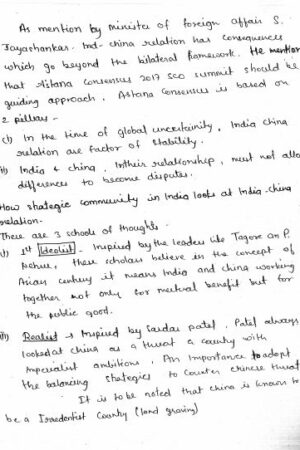 As mention by minister of foreign affair S.
Jayashankar. Ind-china relation has consequences
which go beyond the bilateral framework. He mention
that Astana Consensus 2017 SCO summit should be
guiding approach. Astana Consensus is based on
2 pillars -
(i) In the time of global uncertainity, India China
relation are factor of stability.
ii) India & China, in their relationship, must not allo
differences to become disputes.
How strategic community in India looks at India-china
relation-
There are 3 schools of thoughts.
(i) 1st Idealist - Inspired by the leaders like Tagore on P.
Nehru, these scholars believe in the concept of
Asian century it means India and china working
together not only for mutual benefit but for
the public good.
ii) Realist → Inspired by Saudar patel, Patel always
looked at china as a threat a country with
Imperialist ambitions, An Importance to adopt
the balancing strategies to Counter chinese threat
It is to be noted that china is known to
be a Irredentist Country (land graving)